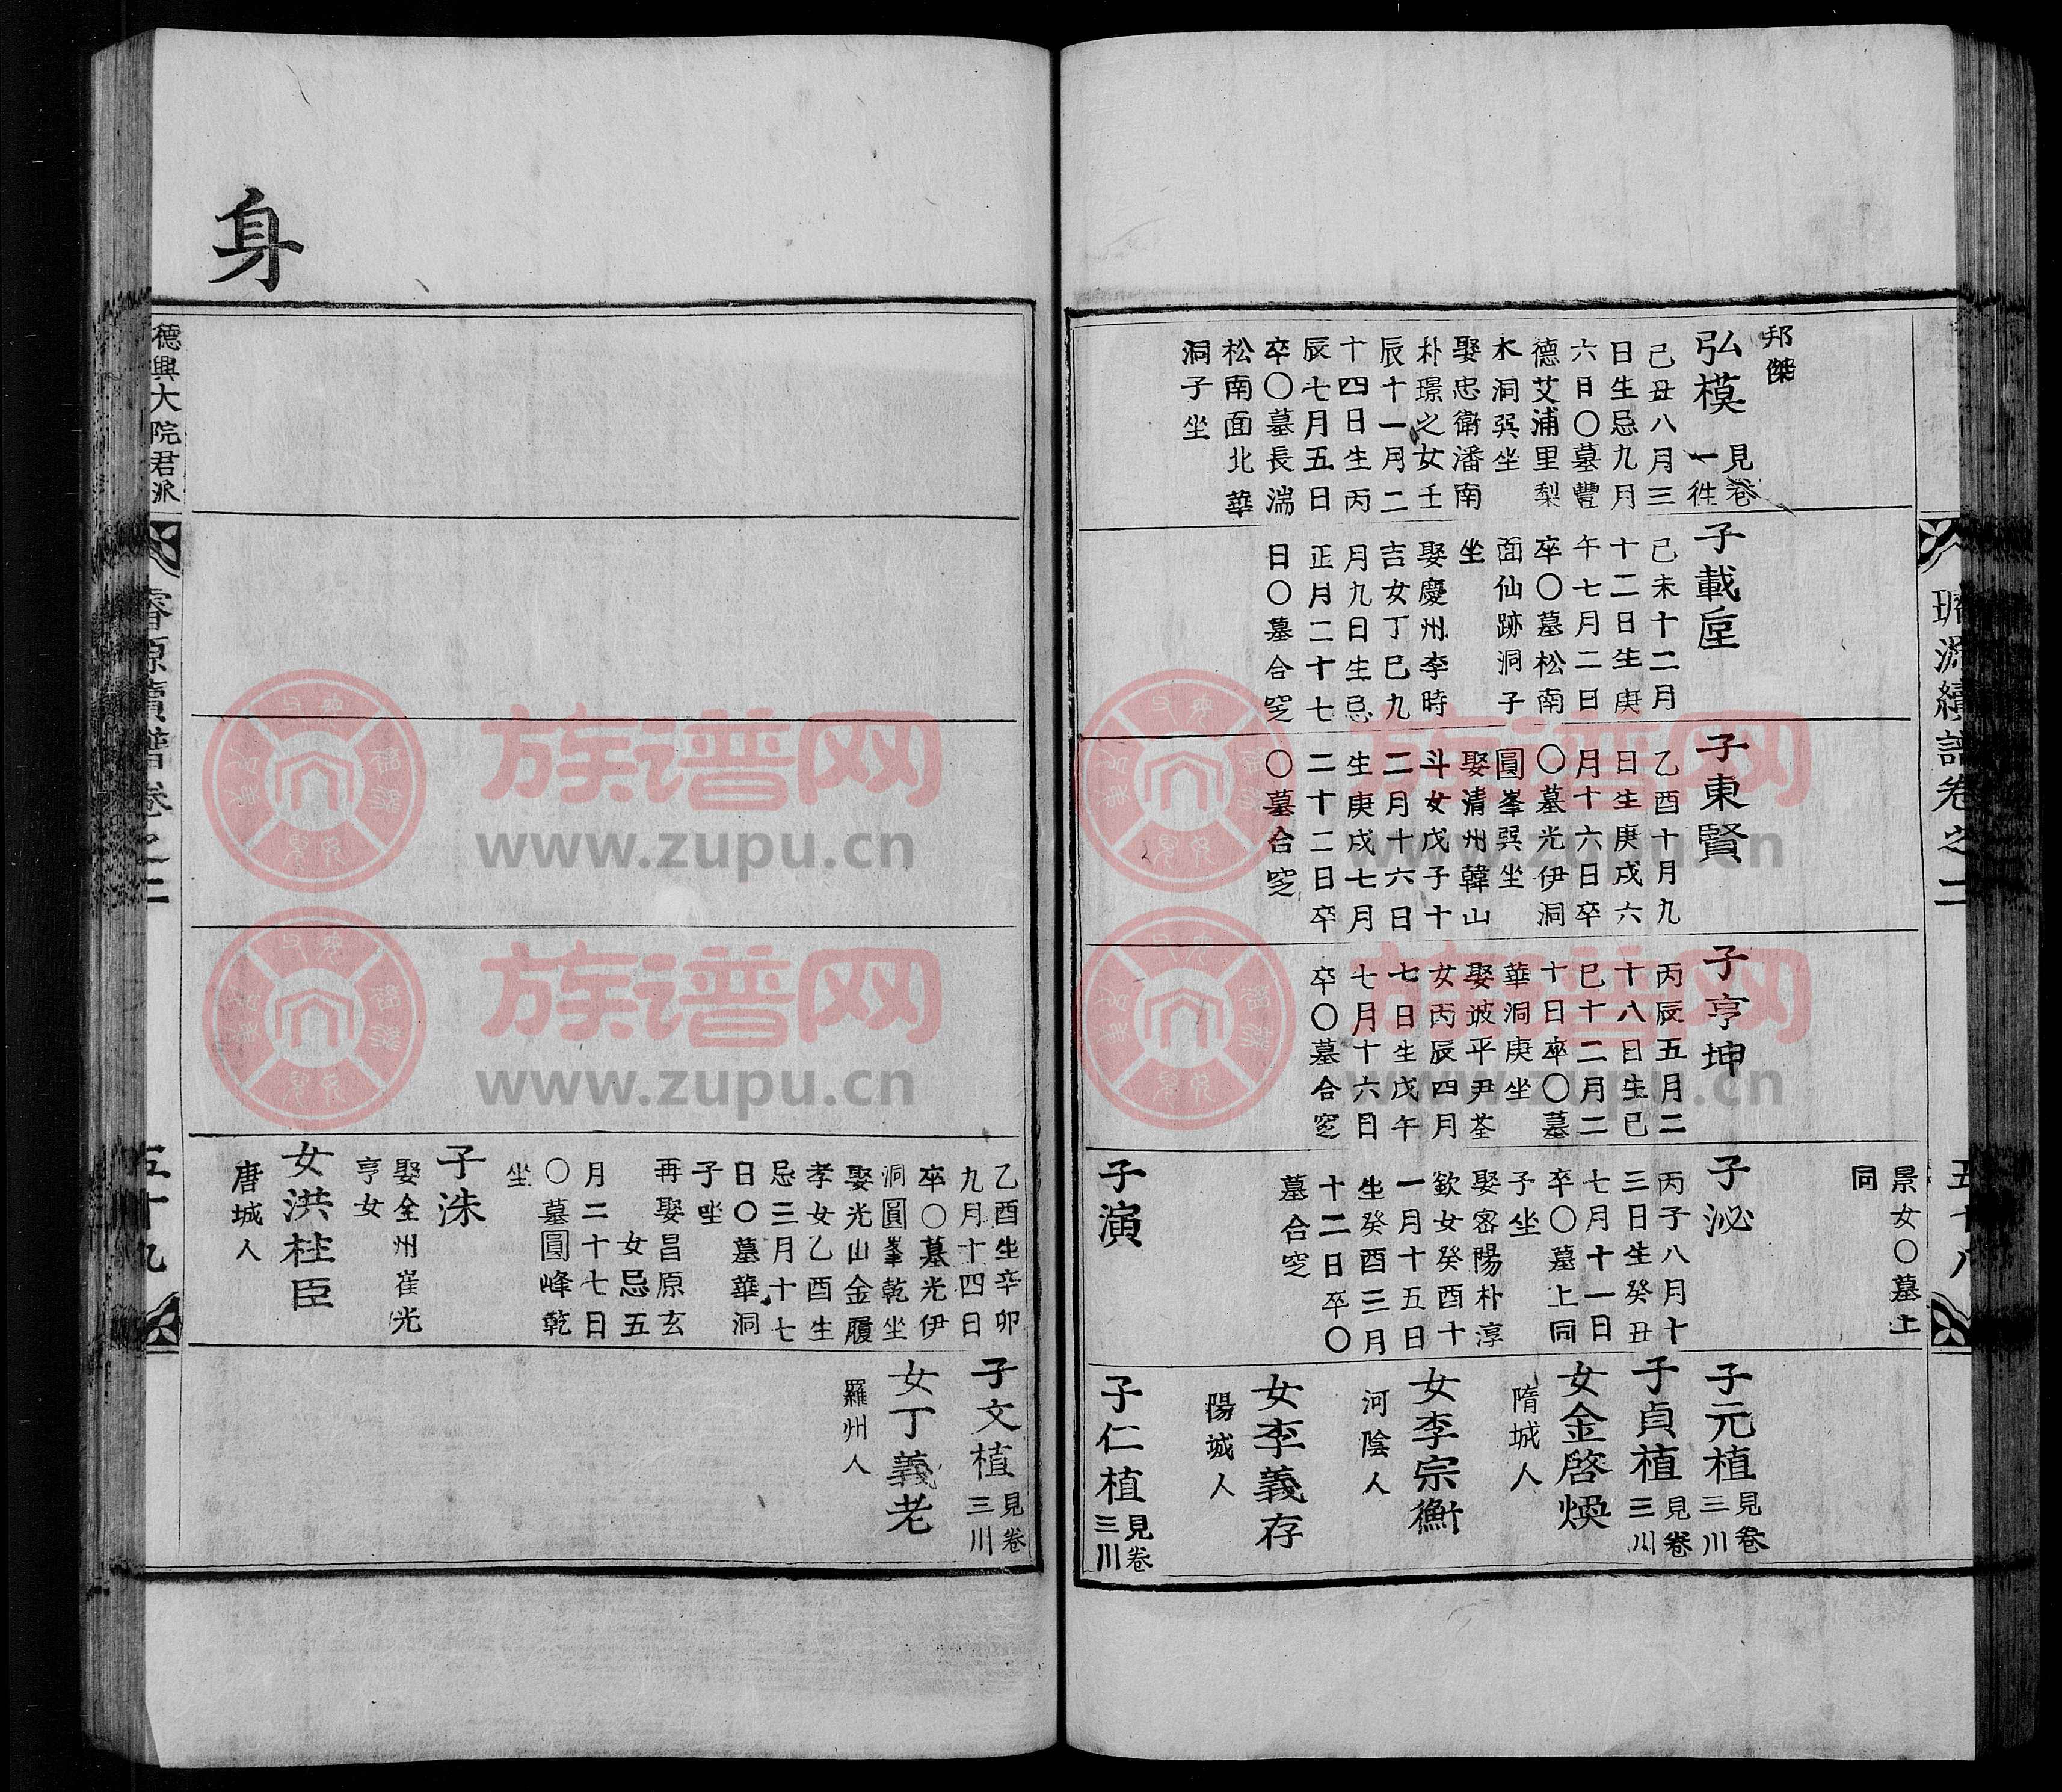 璿源續譜卷之二
五十八
邦傑
弘模
見卷
一徃
己丑八月三
日生忌九月
六日〇墓豐
德艾浦里梨
木洞巽坐
娶忠衛潘南
朴璟之女壬
辰十一月二
十四日生丙
辰七月五日
卒〇墓長湍
松南面北華
洞子坐
子載垕
己未十二月
十二日生庚
午七月二日
卒〇墓松南
面仙跡洞子
坐
娶慶州李時
吉女丁巳九
月九日生忌
正月二十七
日〇墓合窆
子東賢
乙酉十月九
日生庚戌六
月十六日卒
〇墓光伊洞
圓峯巽坐
娶清州韓山
斗女戊子十
二月十六日
生庚戌七月
二十二日卒
〇墓合窆
子亨坤
丙辰五月二
十八日生已
巳十二月二
十日卒〇墓
華洞庚坐
娶坡平尹荃
女丙辰四月
七日生戊午
七月十六日
卒〇墓合窆
景女〇墓上
同
子泌
丙子八月十
三日生癸丑
七月十一日
卒〇墓上同
子坐
娶密陽朴淳
欽女癸酉十
一月十五日
生癸酉三月
十二日卒〇
墓合窆
子演
子元植
見卷
三川
子貞植
見卷
三川
女金啓煥
隋城人
女李宗衡
河陰人
女李義存
陽城人
子仁植
見卷
三川
乙酉生辛卯
九月十四日
卒〇墓光伊
洞圓峯乾坐
娶光山金履
孝女乙酉生
忌三月十七
日〇墓華洞
子坐
再娶昌原玄
女忌五
月二十七日
〇墓圓峰乾
坐
子洙
娶全州崔光
亨女
女洪柱臣
唐城人
子文植
見卷
三川
女丁義老
羅州人
身
德興大院君派
璿源續譜卷之二
五十九
族谱网
www.zupu.cn
族谱网
www.zupu.cn
族谱网
www.zupu.cn
族谱网
www.zupu.cn